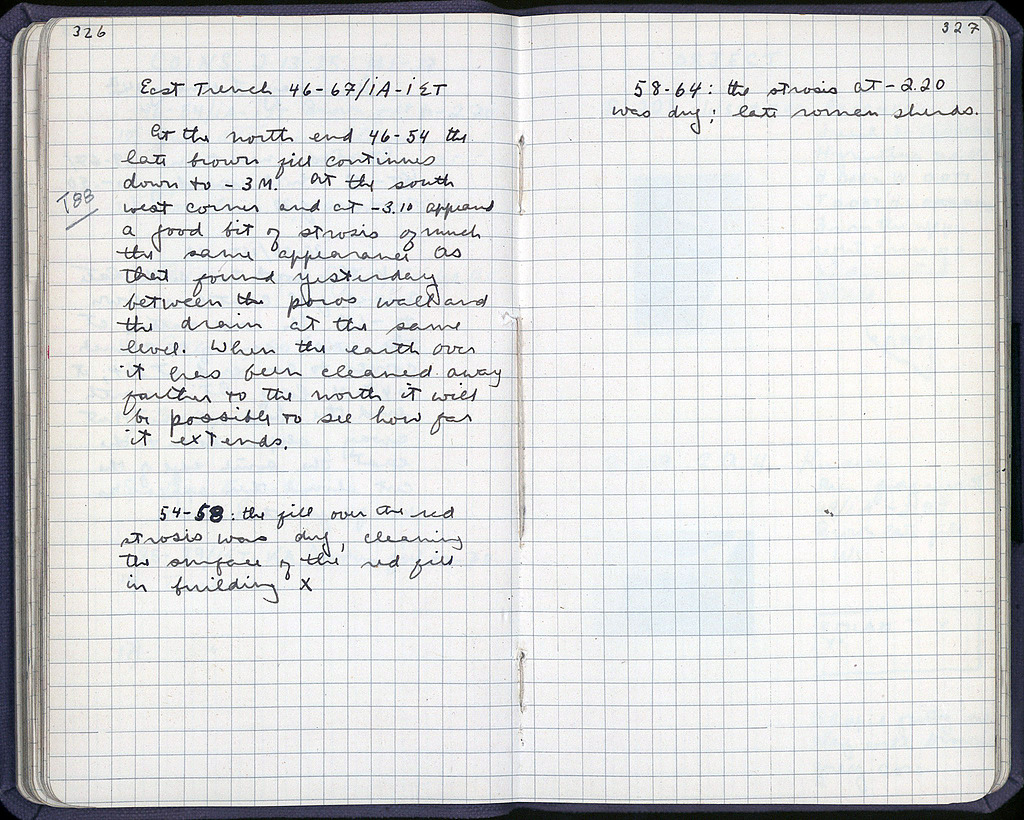 326
East Trench 46-67/ΙΑ-ΙΣΤ
At the north end 46-54 the
late brown fill continues
down to -3 M. At the south
T88
west corner and at -3.10 appeared
a good bit of strosis of much
the same appearance as
that found yesterday
between the poros wall and
the drain at the same
level. When the earth over
it has been cleaned away
farther to the north it will
be possible to see how far
it extends.
54-58: the fill over the red
strosis was dug, cleaning
the surface of the red fill
in building X
327
58-64: the strosis at -2.20
was dug; late roman sherds.